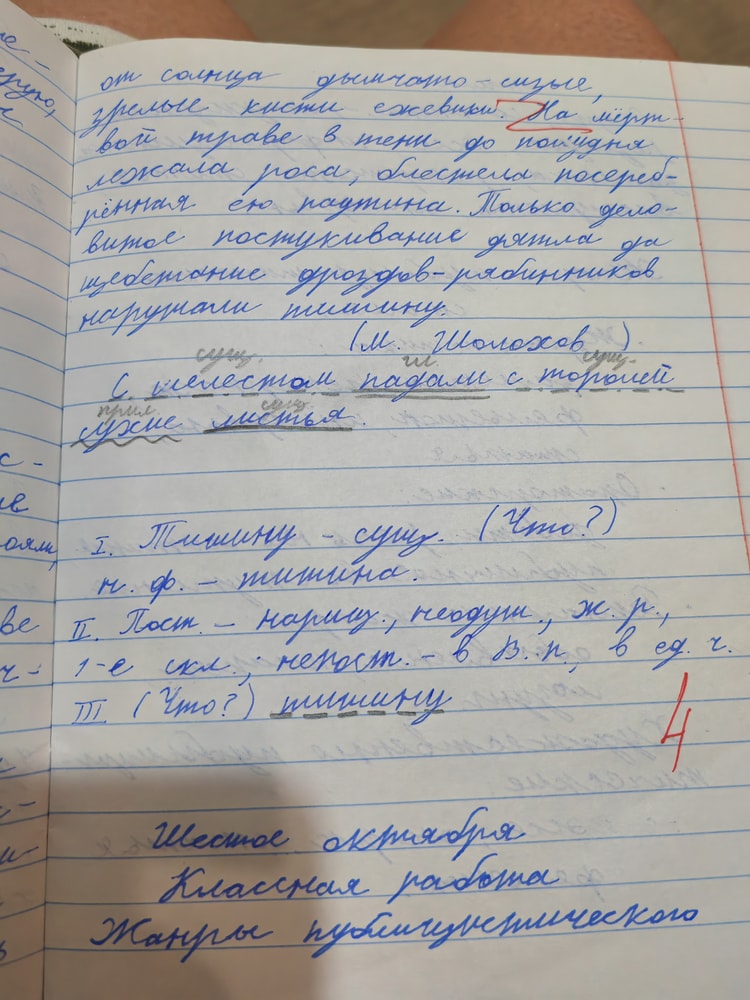 от солнца дымчато-сизые,
зрелые кисти ежевики. На мёрт-
вой траве в тени до полудня
лежала роса, блестела посереб-
рённая ею паутина. Только дело-
витое постукивание дятла да
щебетание дроздов-рябинников
нарушали тишину.
(М. Шолохов)
сущ. гл. сущ.
С шелестом падали с тополей
прил. сущ.
сухие листья.
I. Тишину - сущ. (Что?)
н. ф. - тишина.
II. Пост. - нариц., неодуш., ж. р.,
1-е скл.; непост. - в В.п., в ед. ч.
III (Что?) тишину
4
Шестое октября
Классная работа
Жанры публицистического